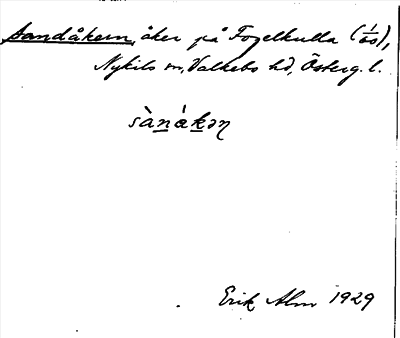 Sandåkern, åker på Fogelkulla (1/ös),
Nykils sn, Valkebo hd, Österg. l.
sànákən
Erik Alm 1929